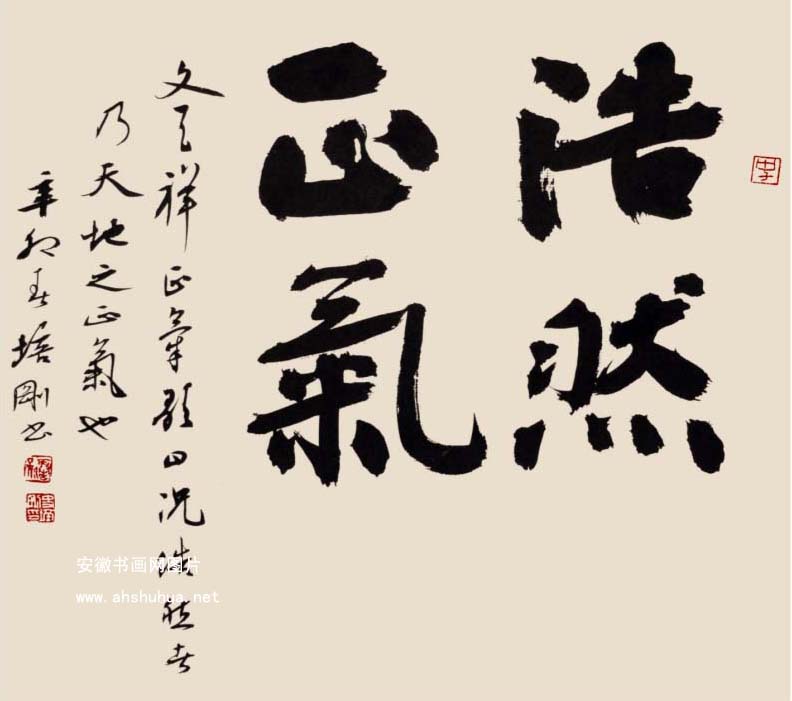 浩然
正氣
文天祥正氣歌曰况浩然者
乃天地之正氣也
辛卯春培剛书
安徽书画网图片
www.ahshuhua.net